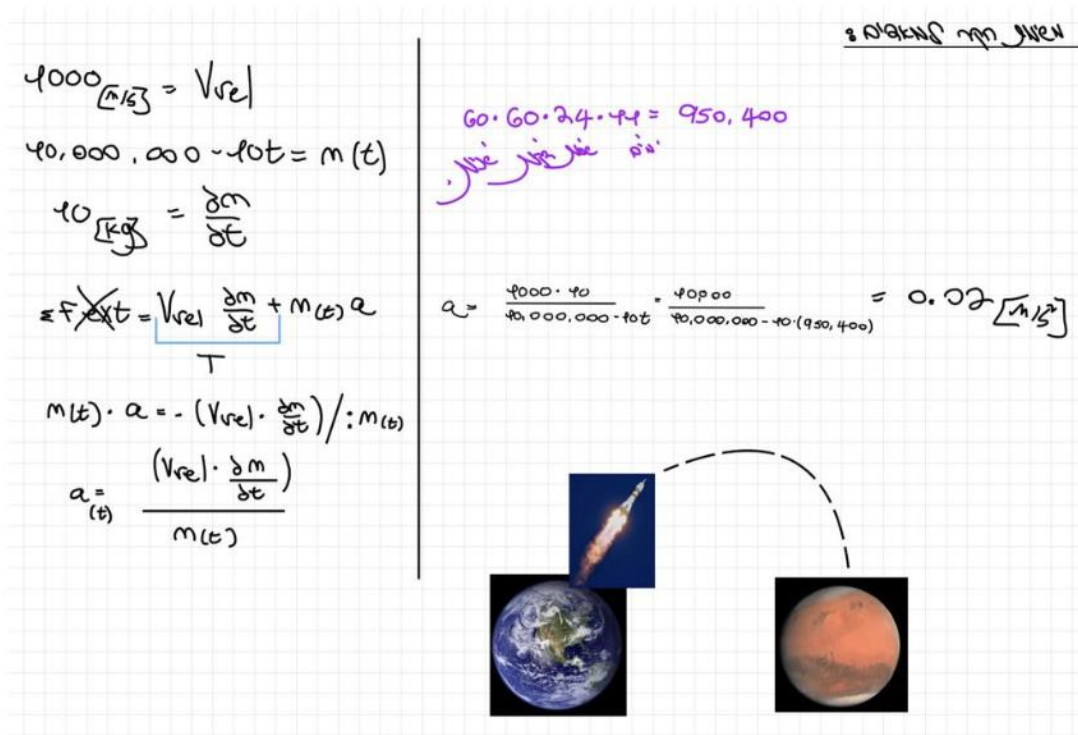 למאדים :
1000 [m/s] = Vrel
10,000,000 - 10t = m(t)
10 [kg] = ∂m/∂t
ΣFext = Vrel ∂m/∂t + m(t) a
T
m(t) · a = - (Vrel · ∂m/∂t) / : m(t)
a(t) = (Vrel · ∂m/∂t) / m(t)
60·60·24·11 = 950,400
ימים שעות
a = 1000·10 / 10,000,000 - 10t = 10,000 / 10,000,000 - 10·(950,400) = 0.02 [m/s²]